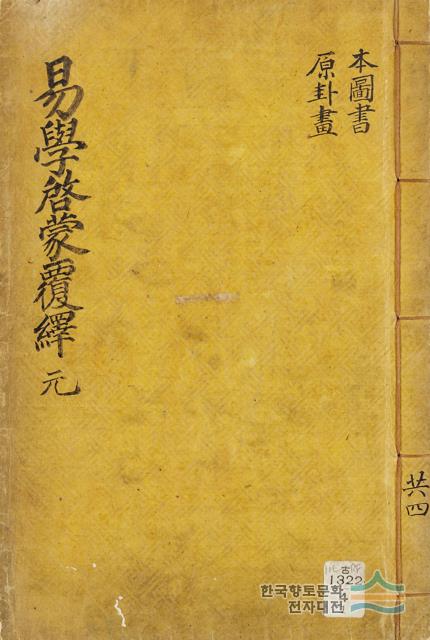 本圖書
原卦畫
易學啓蒙覆繹 元
共四
古
1322
4
한국향토문화
전자대전